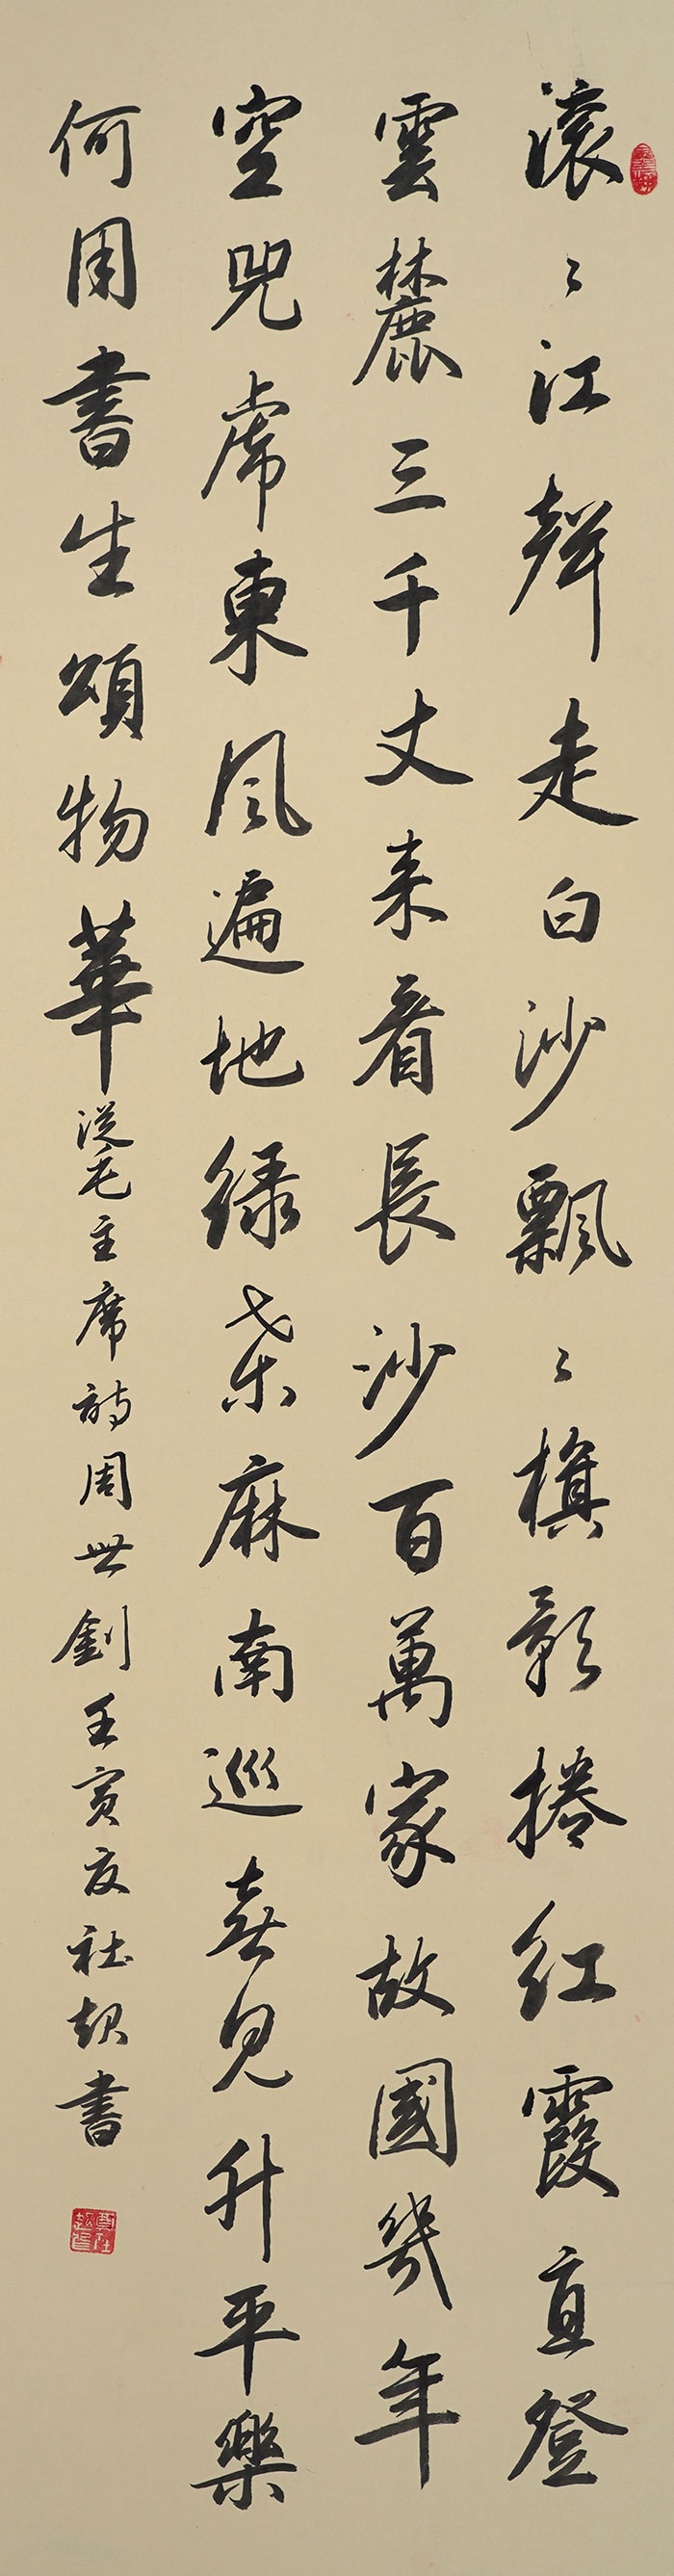 滚〻江聲走白沙飄〻旗影捲紅霞直登
雲麓三千丈来看長沙百萬家故國幾年
空兕虎東風遍地绿桑麻南巡喜見升平樂
何用書生頌物華 毛主席詩周世釗 壬寅夏社超書